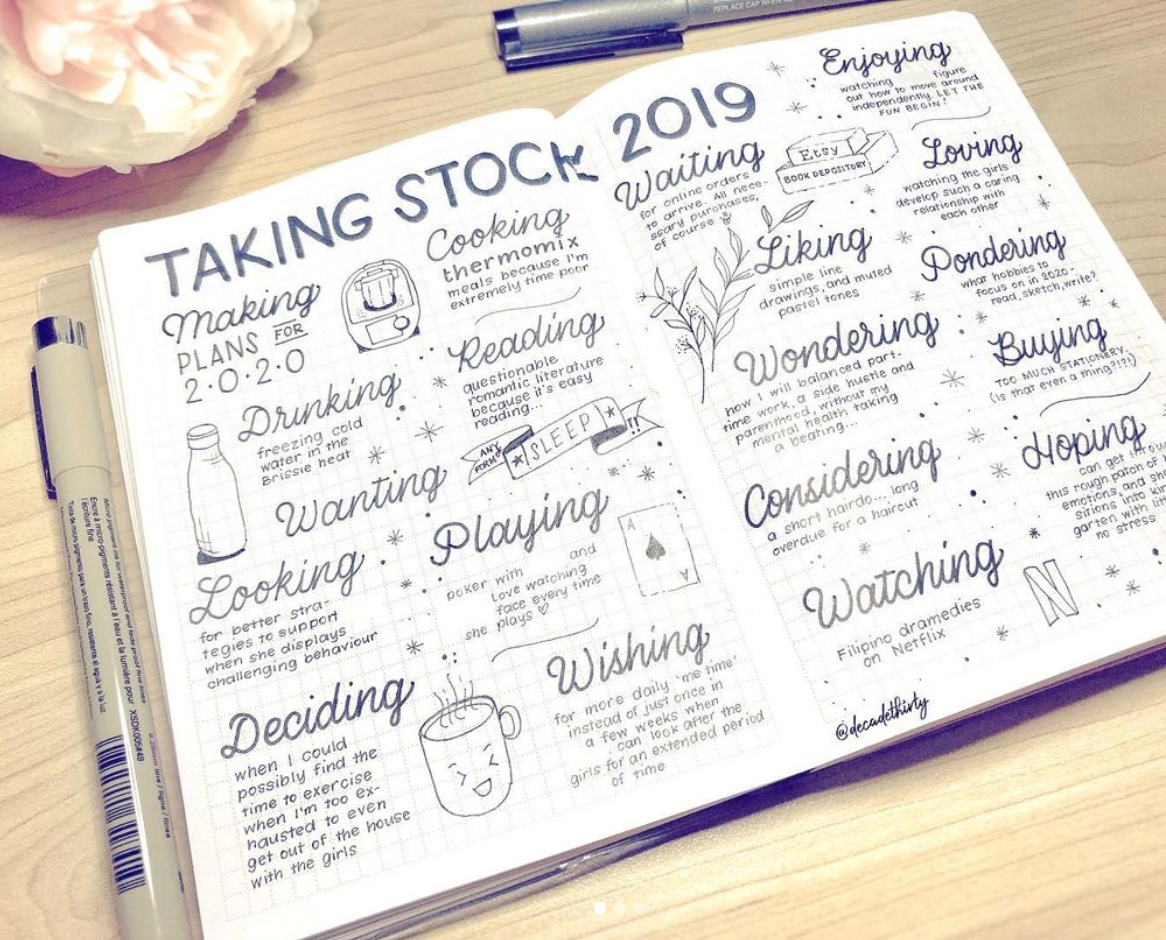 TAKING STOCK 2019
Making
PLANS FOR
2·0·2·0
Cooking
thermomix
meals because I'm
extremely time poor
Drinking
freezing cold
water in the
Brissie heat
Reading
questionable
romantic literature
because it's easy
reading...
Wanting
ANY
FORM OF
SLEEP
!!
Looking
for better stra-
tegies to support
when she displays
challenging behaviour
Playing
poker with and
Love watching
face every time
she plays ♡
A
A
Deciding
when I could
possibly find the
time to exercise
when I'm too ex-
hausted to even
get out of the house
with the girls
Wishing
for more daily 'me time'
instead of just once in
a few weeks when
can look after the
girls for an extended period
of time
Waiting
for online orders
to arrive. All nece-
ssary purchases,
of course
Etsy
BOOK DEPOSITORY
Enjoying
watching figure
out how to move around
independently. LET THE
FUN BEGIN!
Loving
watching the girls
develop such a caring
relationship with
each other
Liking
simple line
drawings, and muted
pastel tones
Pondering
what hobbies to
focus on in 2020 -
read, sketch, write?
Wondering
how I will balanced part-
time work, a side hustle and
parenthood, without my
mental health taking
a beating...
Buying
TOO MUCH STATIONERY.
(Is that even a thing?!?!)
Considering
a short hairdo... long
overdue for a haircut
Hoping
can get
this rough patch of
emotions, and
into
garten with
no stress
Watching
Filipino dramedies
on Netflix
N
@decadethirty
REPLACE CAP WHEN
Micro pigment ink for waterproof and fade proof lines
Encre à micro-pigments résistant à l'eau et la lumière pour
l'écriture fine
XSDK005#49